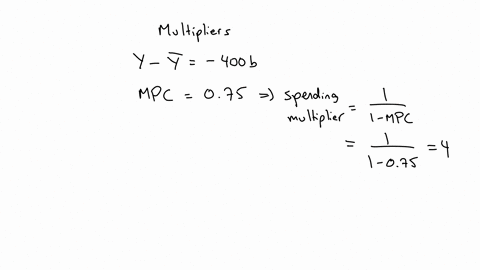 Multipliers
Y - Ȳ = - 400b
MPC = 0.75 ⇒ spending multiplier = 1/(1-MPC)
= 1/(1-0.75) = 4